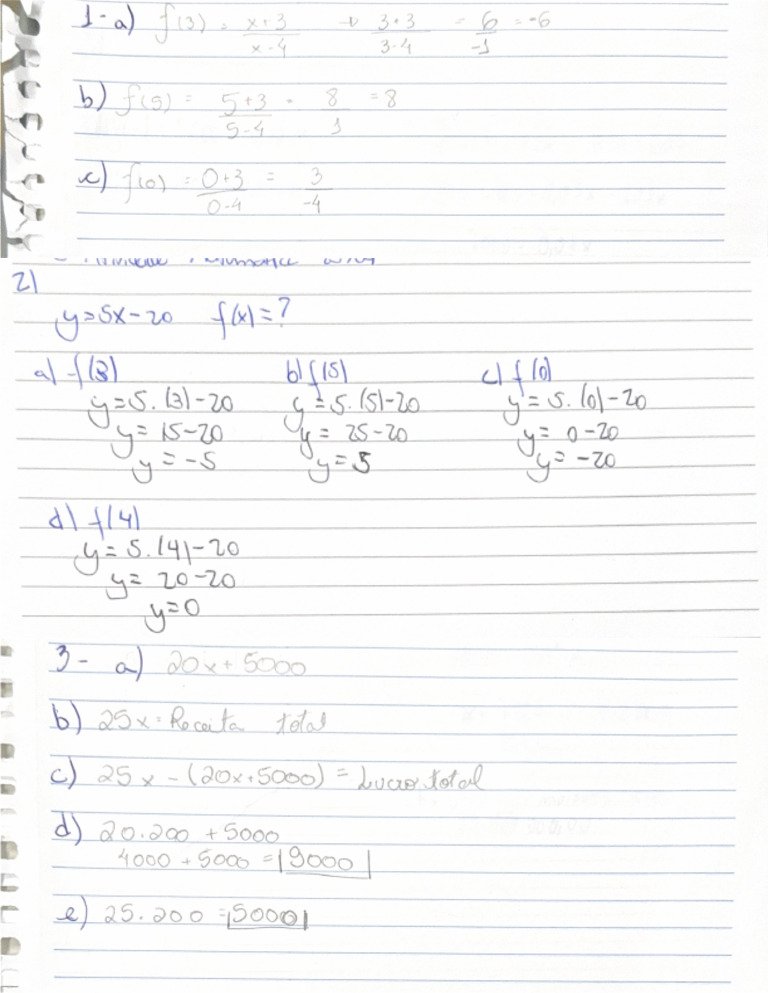 1-a) f(3) = x+3/x-4 → 3+3/3-4 = 6/-1 = -6
b) f(5) = 5+3/5-4 = 8/1 = 8
c) f(0) = 0+3/0-4 = 3/-4
2)
y=5x-20 f(x)=?
a) f(3) b) f(5) c) f(0)
y=5.(3)-20 y=5.(5)-20 y=5.(0)-20
y=15-20 y=25-20 y=0-20
y=-5 y=5 y=-20
d) f(4)
y=5.(4)-20
y=20-20
y=0
3- a) 20x+5000
b) 25x=Receita total
c) 25x-(20x+5000)=Lucro total
d) 20.200+5000
4000+5000=|9000|
e) 25.200=|5000|